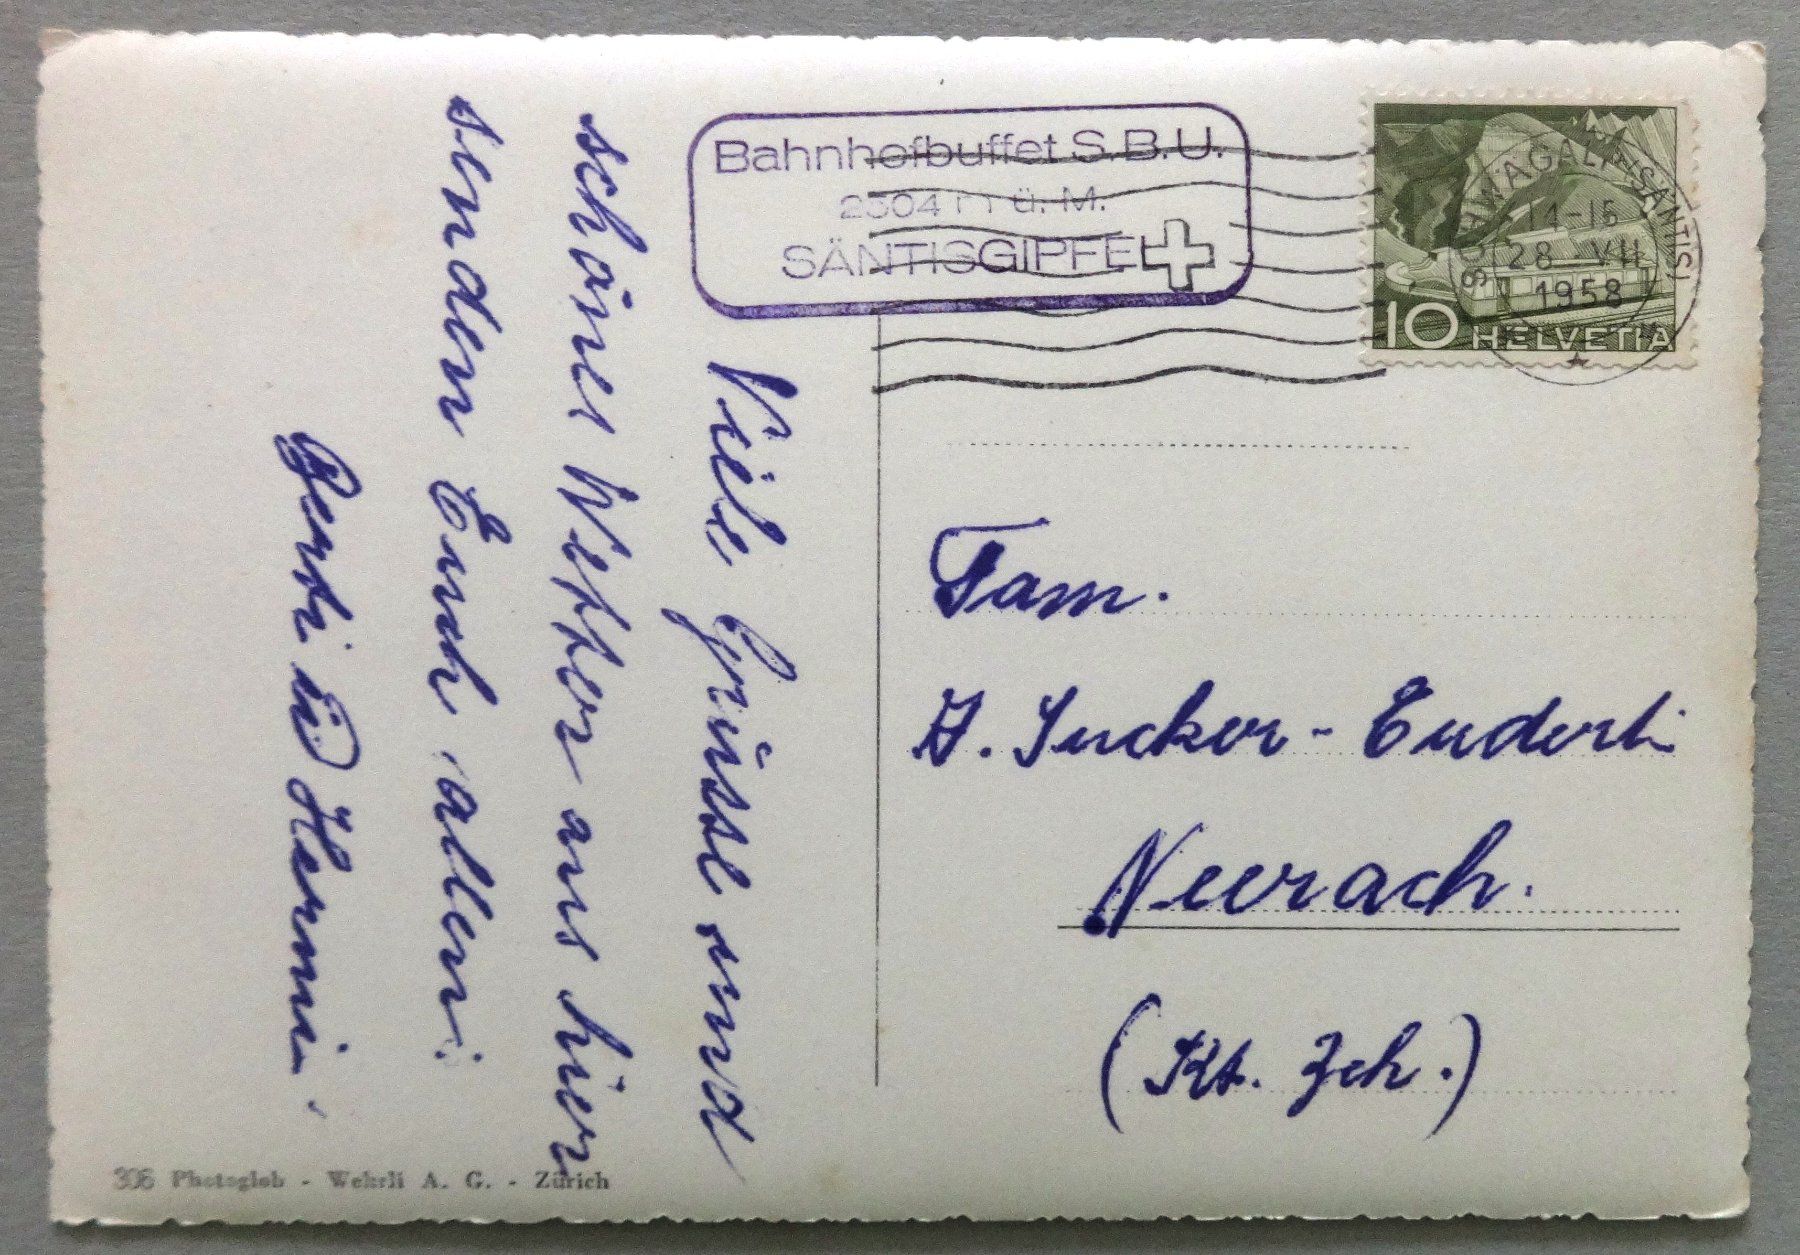 Bahnhofbuffet S.B.U.
2504 m ü. M.
SÄNTISGIPFEL
SCHWÄGALP (SÄNTIS)
14-15
28 - VII
1958
10 HELVETIA
Viele Grüsse und
schönes Wetter aus hier
senden Euch allen
Berti u Hermi.
Fam.
J. Surcker - Enderli
Neerach.
(Kt. Zch.)
306 Photoglob - Wehrli A. G. - Zürich